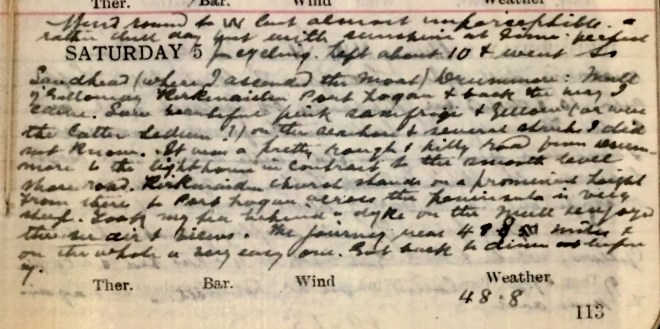 Ther. Bar. Wind Weather
Wind round to W but almost imperceptible. a
rather dull day but with sunshine at times: perfect
SATURDAY 5 for cycling. Left about 10 & went to
Sandhead (where I ascended the Moat) Drummore: Mull
of Galloway Kirkmaiden Port Logan & back the way I
came. Saw beautiful pink & yellow (or were
the latter Sedum?) on the seashore & several I did
not know. It was a pretty rough & hilly road from Drum-
more to the lighthouse in contrast to the smooth level
shore road. Kirkmaiden church stands on a prominent height
From there to Port Logan across the peninsula is very
steep. Took my tea behind a dyke on the Mull & enjoyed
the air & views. The journey was miles &
on the whole a very easy one. Got back to dinner at before
7.
Ther. Bar. Wind Weather
48.8
113